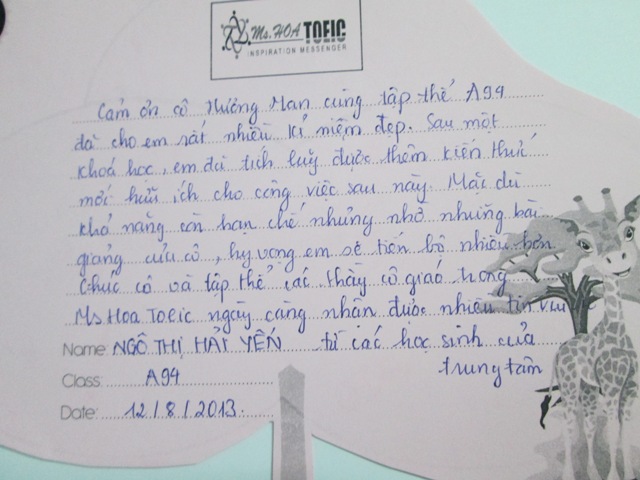 Ms. HOA TOEIC
INSPIRATION MESSENGER
Cảm ơn cô Hương Lan cùng tập thể A94
đã cho em rất nhiều kỉ niệm đẹp. Sau một
khoá học, em đã tích luỹ được thêm kiến thức
mới hữu ích cho công việc sau này. Mặc dù
khả năng còn hạn chế nhưng nhờ những bài
giảng của cô, hy vọng em sẽ tiến bộ nhiều hơn
Chúc cô và tập thể các thầy cô giáo trong
Ms Hoa Toeic ngày càng nhận được nhiều tin yêu
Name: NGÔ THỊ HẢI YẾN từ các học sinh của
trung tâm
Class: A94
Date: 12/8/2013